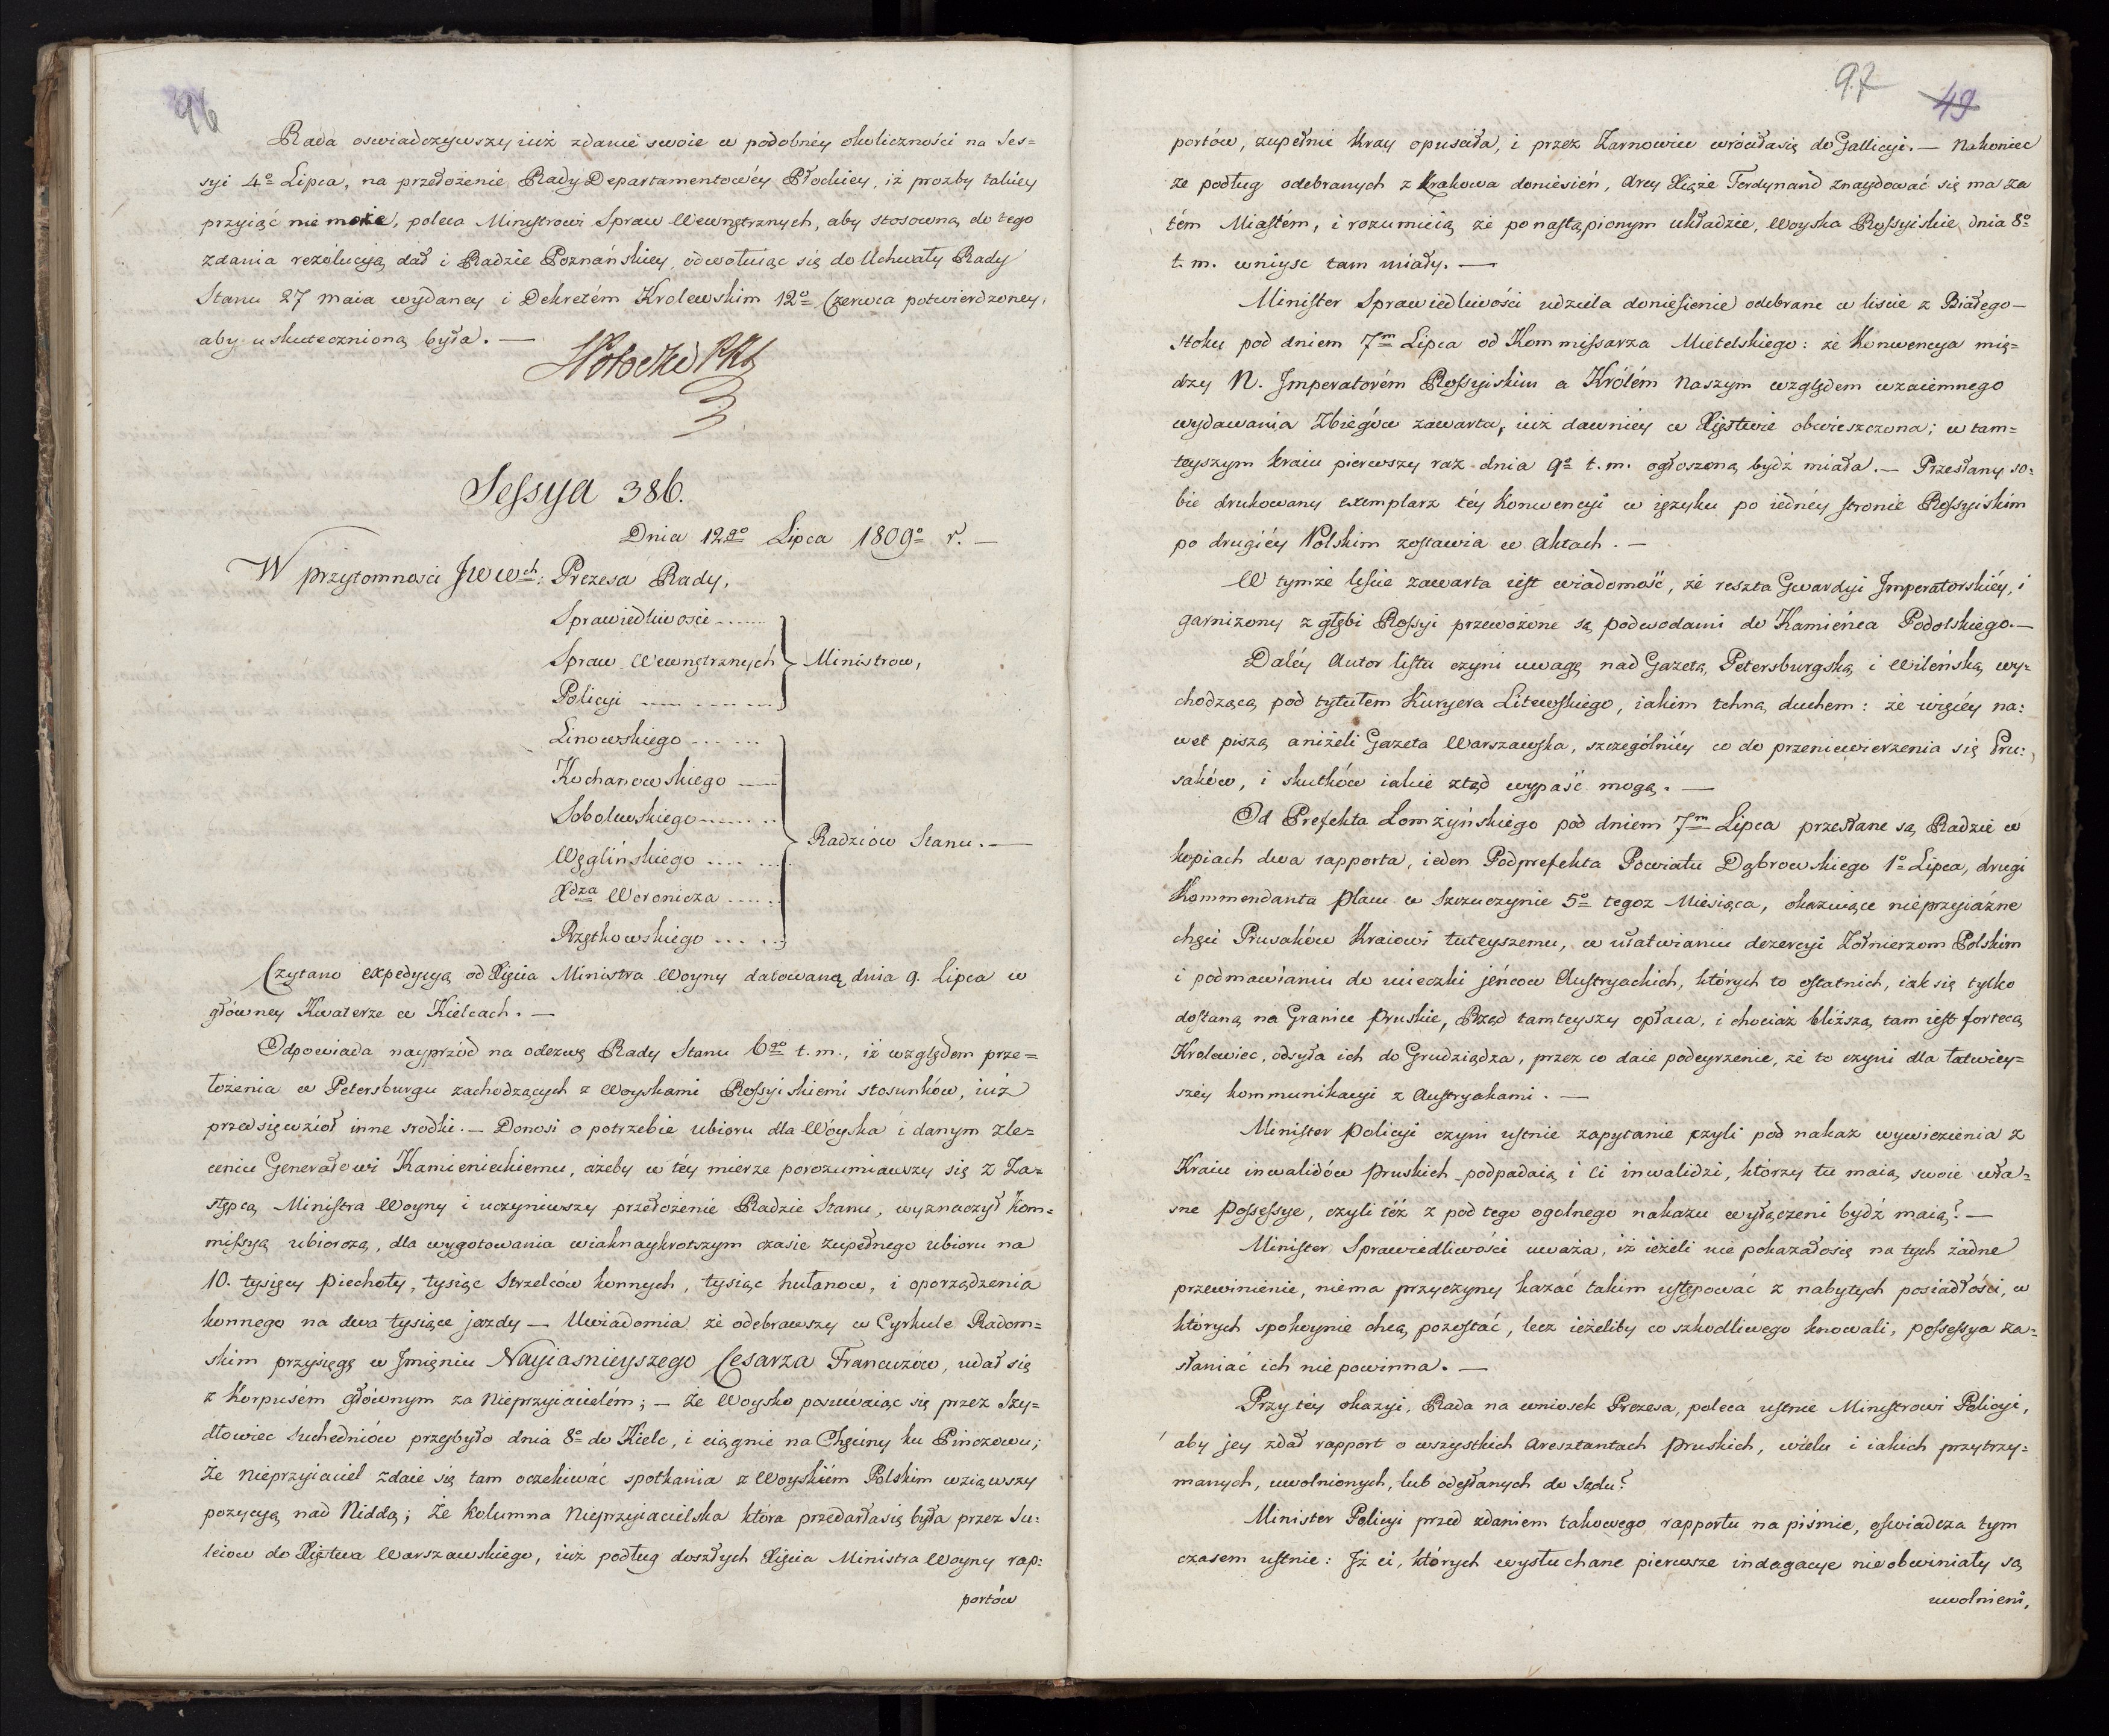 96
Rada oswiadczywszy iuż zdanie swoie w podobnéy okoliczności na Ses=
syi 4º Lipca, na przełożenie Rady Departamentowéy Płockiey, iż prozby takiey
przyiąć nie może, poleca Ministrowi Spraw Wewnętrznych, aby stosowną do tego
zdania rezolucyą dał i Radzie Poznańskiey, odwołuiąc się do Uchwały Rady
Stanu 27 maia wydaney i Dekretém Krolewskim 12º Czerwca potwierdzoney,
aby uskutecznioną była. —
Sessya 386.
Dnia 12go Lipca 1809º r. —
W przytomności JWWch: Prezesa Rady,
Sprawiedliwości .......
Spraw Wewnętrznych } Ministrow,
Policyi ...............
Linowskiego .......
Kochanowskiego ......
Sobolewskiego ........
Węglińskiego ........ } Radzców Stanu. —
Xdza Woronicza ......
Rzętkowskiego .......
Czytano expedycyą od Xięcia Ministra Woyny datowaną dnia 9. Lipca w
główney Kwaterze w Kielcach. —
Odpowiada nayprzód na odezwę Rady Stanu 6go t. m., iż względem prze=
łożenia w Petersburgu zachodzących z Woyskami Rossyiskiemi stosunków, iuż
przedsięwziął inne srodki. — Donosi o potrzebie ubioru dla Woyska i danym zle=
ceniu Generałowi Kamienieckiemu, ażeby w téy mierze porozumiawszy się z Za=
stępcą Ministra Woyny i uczyniwszy przełożenie Radzie Stanu, wyznaczył Kom=
missyą ubiorczą, dla wygotowania wiaknaykrotszym czasie zupełnego ubioru na
10. tysięcy piechoty, tysiąc Strzelców konnych, tysiąc hułanow, i oporządzenia
konnego na dwa tysiące jazdy — Uwiadomia że odebrawszy w Cyrkule Radom=
skim przysięgę w Jmięniu Nayiasnieyszego Cesarza Francuzów, udał się
z Korpusém głównym za Nieprzyiacielém; — że Woysko posuwaiąc się przez Szy=
dłowiec Suchedniów przybyło dnia 8º do Kielc, i ciągnie na Chęciny ku Pinczowu;
że Nieprzyiaciel zdaie się tam oczekiwać spotkania z Woyskiém Polskim wziąwszy
pozycyą nad Niddą; że kolumna Nieprzyiacielska która przedarłasię była przez Su=
leiow do Xięstwa Warszawskiego, iuż podług doszłych Xięcia Ministra Woyny rap=
portów
97
49
portów, zupełnie Kray opusciła, i przez Żarnowiec wróciłasię do Gallicyi. — Nakoniec
że podług odebranych z Krakowa doniesień, Arcy Xiąże Ferdynand znaydować się ma za
tém Miastém, i rozumieią że po nastąpionym układzie, Woyska Rossyiskie dnia 8º
t. m. wniysc tam miały. —
Minister Sprawiedliwości udziela doniesienie odebrane w liscie z Białego—
stoku pod dniem 7m Lipca od Kommissarza Mietelskiego: że Konwencya mię=
dzy N. Jmperatorém Rossyiskim a Królém Naszym względem wzaiemnego
wydawania Zbiegów zawarta, iuż dawniéy w Xięstwie obwieszczona; w tam=
teyszym kraiu pierwszy raz dnia 9º t. m. ogłoszoną bydź miała. — Przesłany so=
bie drukowany exemplarz téy Konwencyi w ięzyku po iednéy stronie Rossyiskim
po drugiéy Polskim zostawia w Aktach. —
W tymże liście zawarta iest wiadomość, że reszta Gwardyi Jmperatorskiéy, i
garnizony z głębi Rossyi przewożone są podwodami do Kamieńca Podolskiego. —
Daléy Autor listu czyni uwagę nad Gazetą Petersburgską i Wileńską wy=
chodzącą pod tytułem Kuryera Litewskiego, iakim tchną duchem: że więcéy na=
wet piszą aniżeli Gazeta Warszawska, szczególniéy co do przeniewierzenia się Pru=
saków, i skutków iakie ztąd wypaść mogą. —
Od Prefekta Łomżyńskiego pod dniem 7m Lipca przesłane są Radzie w
kopiach dwa rapporta, ieden Podprefekta Powiatu Dąbrowskiego 1º Lipca, drugi
Kommendanta placu w Szczuczynie 5º tegoz Miesiąca, okazuiące nieprzyiaźne
chęci Prusaków Kraiowi tuteyszemu, w ułatwianiu dezercyi Żołnierzom Polskim
i podmawianiu do ucieczki jeńcow Austryackich, których to ostatnich, iak się tylko
dostaną na Granice Pruskie, Rząd tamteyszy opłaca, i chociaż bliższą tam iest fortecą
Krolewiec, odsyła ich do Grudziądza, przez co daie podeyrzenie, że to czyni dla łatwiey=
széy kommunikacyi z Austryakami. —
Minister Policyi czyni ustnie zapytanie czyli pod nakaz wywiezienia z
Kraiu inwalidów pruskich podpadaią i ci inwalidzi, którzy tu maią swoie wła=
sne possessye, czyli téż z pod tego ogolnego nakazu wyłączeni bydź maią? —
Minister Sprawiedliwości uważa, iż ieżeli nie pokazałosię na tych żadne
przewinienie, niema przyczyny kazać takim ustępować z nabytych posiadłości, w
których spokoynie chcą pozostać, lecz ieżeliby co szkodliwego knowali, possessya za=
słaniać ich niepowinna. —
Przy téy okazyi, Rada na wniosek Prezesa, poleca ustnie Ministrowi Policyi,
aby jey zdał rapport o wszystkich Aresztantach pruskich, wielu i iakich przytrzy=
manych, uwolnionych, lub odesłanych do Sądu?
Minister Policyi przed zdaniem takowego rapportu na piśmie, oświadcza tym
czasem ustnie: Jż ci, których wysłuchane pierwsze indagacye nieobwiniały są
uwolnieni,